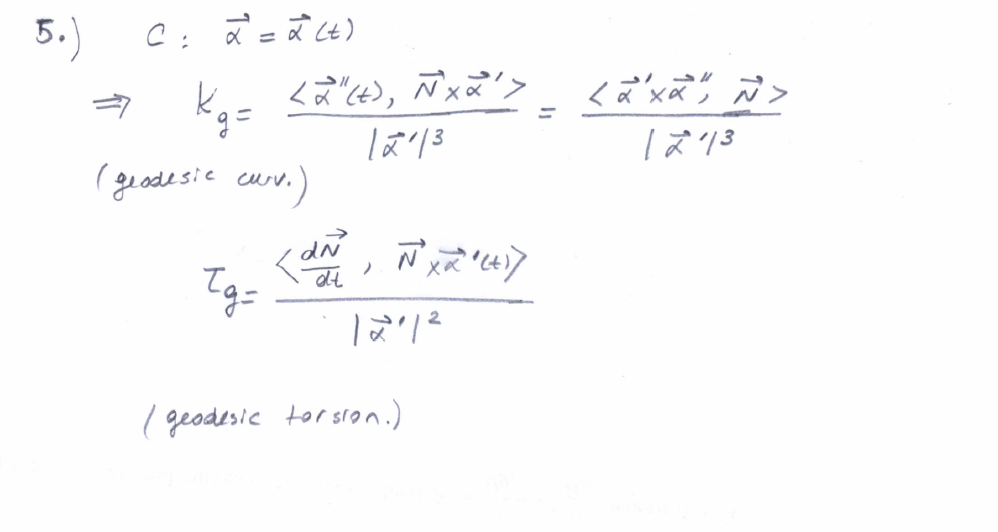 5.) C : α⃗ = α⃗(t)
⇒ Kg = <α⃗''(t), N⃗ x α⃗'> / |α⃗'|³ = <α⃗' x α⃗'', N⃗> / |α⃗'|³
(geodesic curv.)
τg = <dN⃗/dt, N⃗ x α⃗'(t)> / |α⃗'|²
(geodesic torsion.)